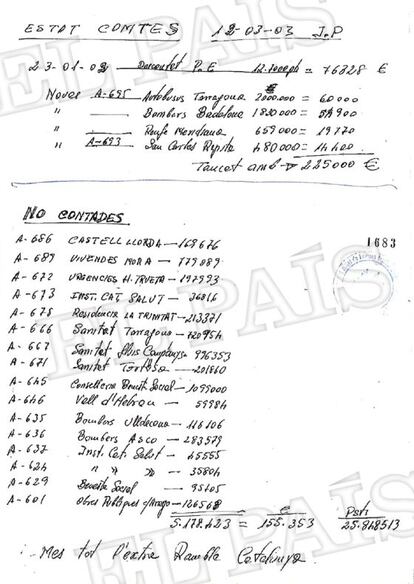 ESTAT COMTES 12-03-03 J.P
23-01-02 Descomptat P.E 12.700.000 = 76328 €
Noves A-695 Autobusos Tarragona 2000.000 = 60000
" Bombers Badalona 1.830.000 = 54900
" 659000 = 19770
" A-693 San Carlos Rapita 480000 = 14400
Tancat amb → 225000 €
NO CONTADES
A-686 CASTELL LLORDA — 169676
A-689 VIVENDES MORA — 779089
A-672 URGENCIES H. TRUETA — 197993
A-673 INST. CAT SALUT — 36816
A-678 Residència LA TRINITAT — 213371
A-666 Sanitat Tarragona — 720954
A-667 Sanitat Lluis Companys 996353
A-671 Sanitat Tortosa — 201660
A-645 Conselleria Benestar Social — 1099000
A-646 Vall d'Hebron — 59984
A-635 Bombers Ulldecona — 116106
A-636 Bombers Asco — 283579
A-637 Inst. Cat. Salut — 65555
A-624 " " " — 35804
A-629 Benestar Social — 95105
A-601 Obres Publiques — 126568
€ Pts
5.178.423 = 155.353 25.848513
Mes tot l'extra Rambla Catalunya
1683
EL PAÍS